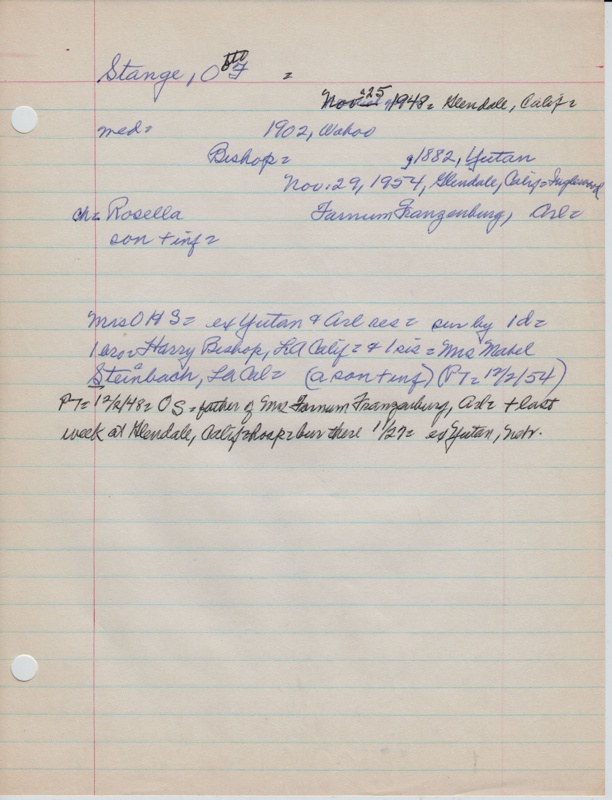 Stange, Otto F =
Nov 25 1948 = Glendale, Calif =
med = 1902, Wahoo
Bishop = 1882, Yutan
Nov. 29, 1954, Glendale, Calif = Inglewood
ch = Rosella Farnum Franzenburg, Arl =
son + inf =
Mrs O H S = ex Yutan & Arl res = sur by 1 d =
1 bro = Harry Bishop, LA Calif = & 1 sis = Mrs Mabel
Steinbach, La Cal = (a son + inf) (PT = 12/2/54)
PT = 12/2/48 = OS = father of Mrs Farnum Franzenburg, Arl = + last
week at Glendale, Calif = hosp = bur there 11/27 = ex Yutan, Nebr.